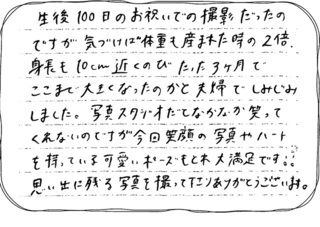 生後100日のお祝いでの撮影だったの
ですが気づけば体重も産まれた時の2倍.
身長も10cm近くのび たった3ヶ月で
ここまで大きくなったのかと夫婦でしみじみ
しました。写真スタジオだとなかなか笑って
くれないのですが今回笑顔の写真やハート
を持っている可愛いポーズもとれ大満足です!!
思い出に残る写真を撮って下さりありがとうございます。